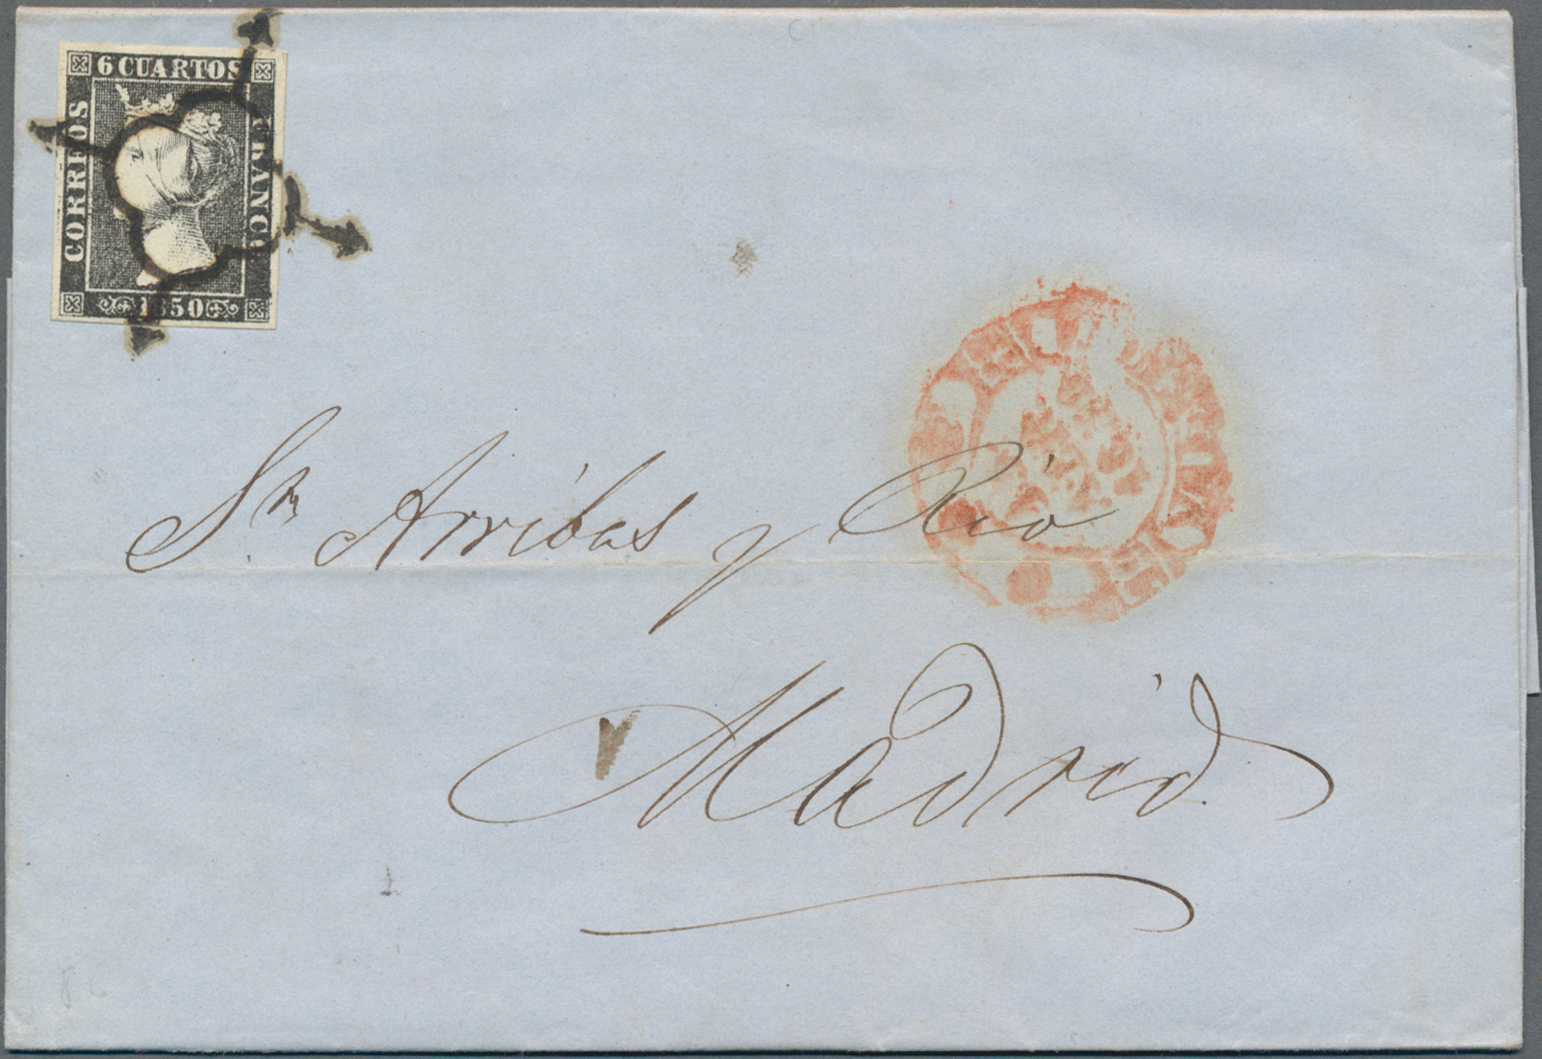 6 CUARTOS
CORREOS
FRANCO
1850
Sres Arribas y Rio
Madrid